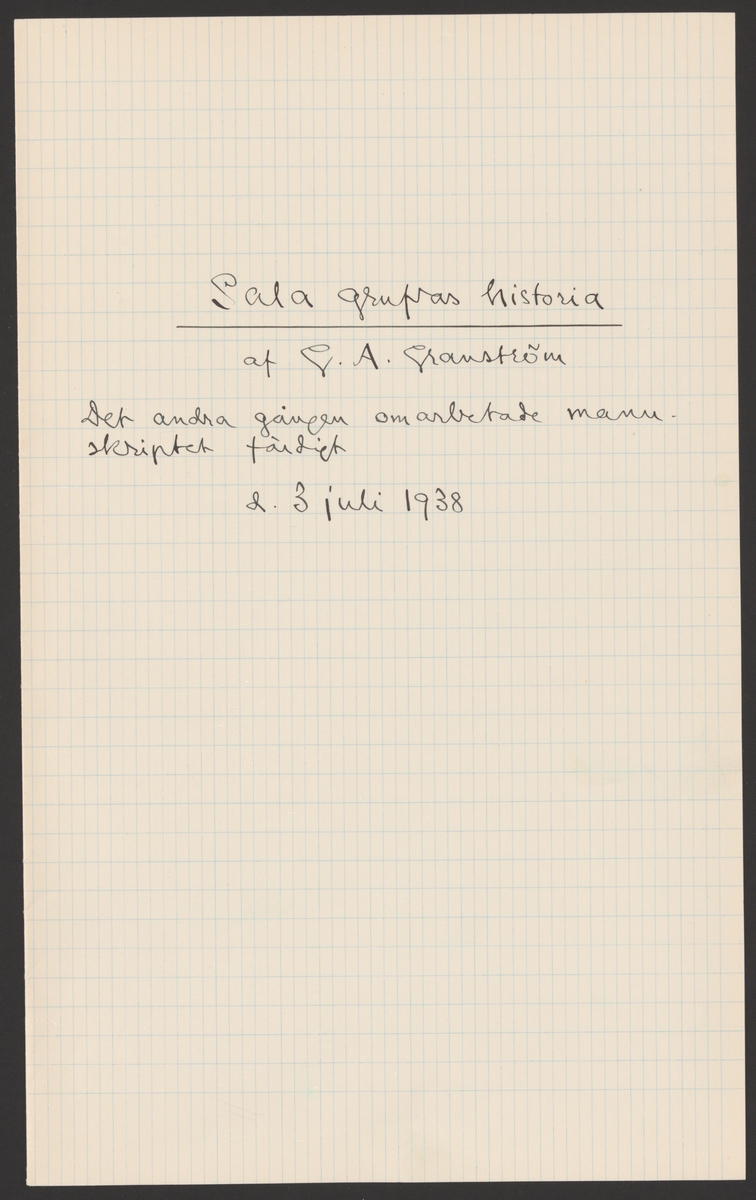 Sala grufvas historia
af G. A. Granström
Det andra gången omarbetade manu-
skriptet färdigt
d. 3 juli 1938